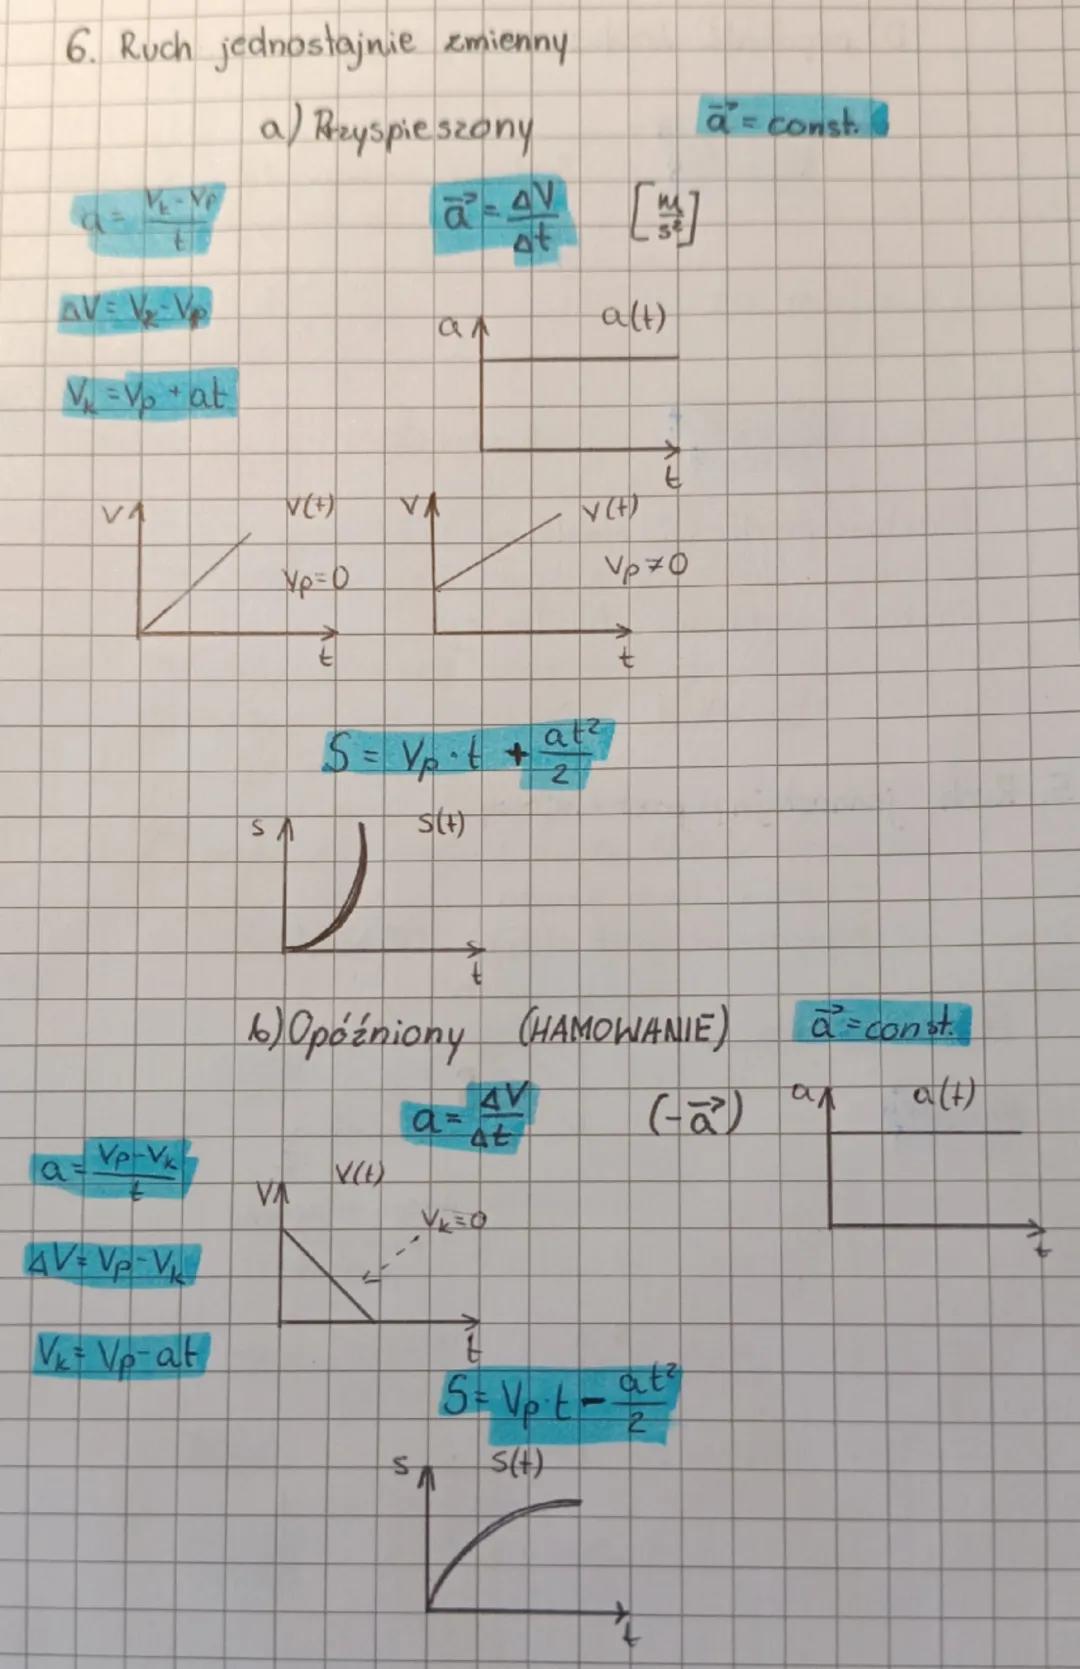 6. Ruch jednostajnie zmienny
a) Przyspieszony
a⃗ = const.
a = (Vk - Vp)/t
a⃗ = ΔV/Δt [m/s²]
ΔV = Vk - Vp
a a(t)
t
Vk = Vp + at
V V(t)
Vp = 0
t
V V(t)
Vp ≠ 0
t
S = Vp · t + at²/2
S S(t)
t
b) Opóźniony (HAMOWANIE)
a⃗ = const.
a = ΔV/Δt (-a⃗)
a a(t)
t
a = (Vp - Vk)/t
V V(t)
Vk = 0
t
ΔV = Vp - Vk
Vk = Vp - at
S = Vp · t - at²/2
S S(t)
t